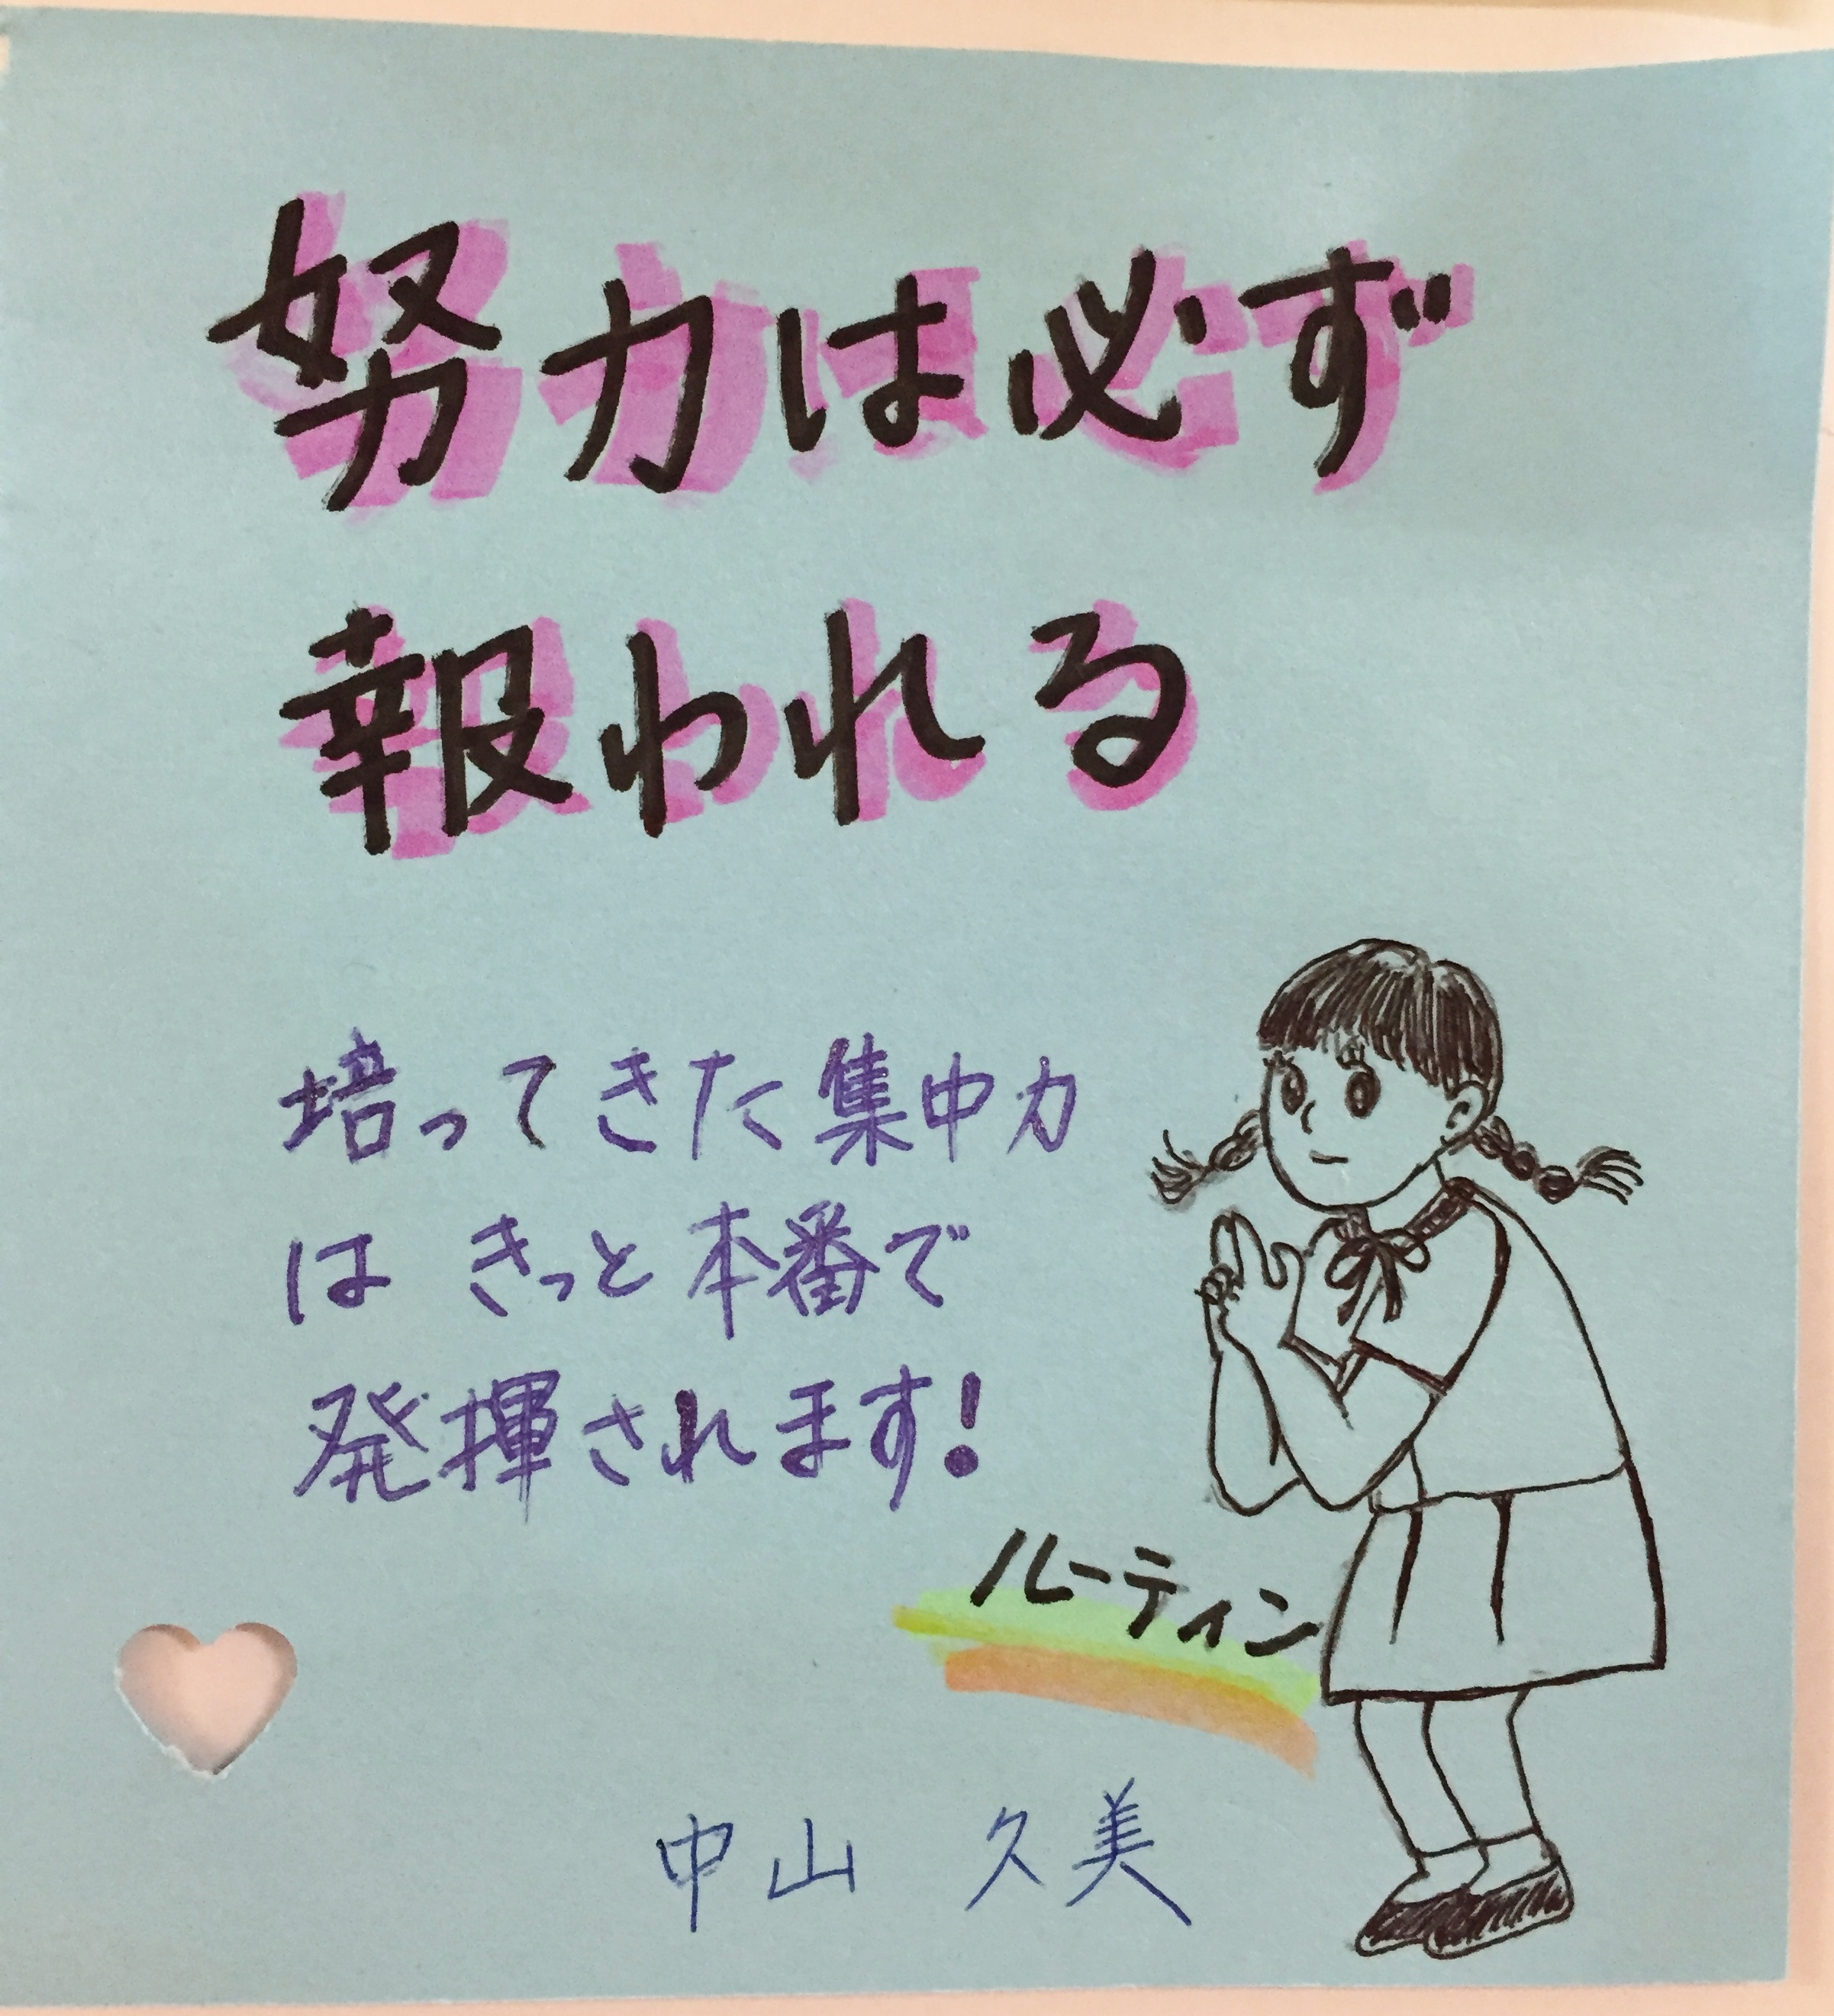 努力は必ず
報われる
培ってきた集中力
は きっと本番で
発揮されます!
ルーティン
中山 久美